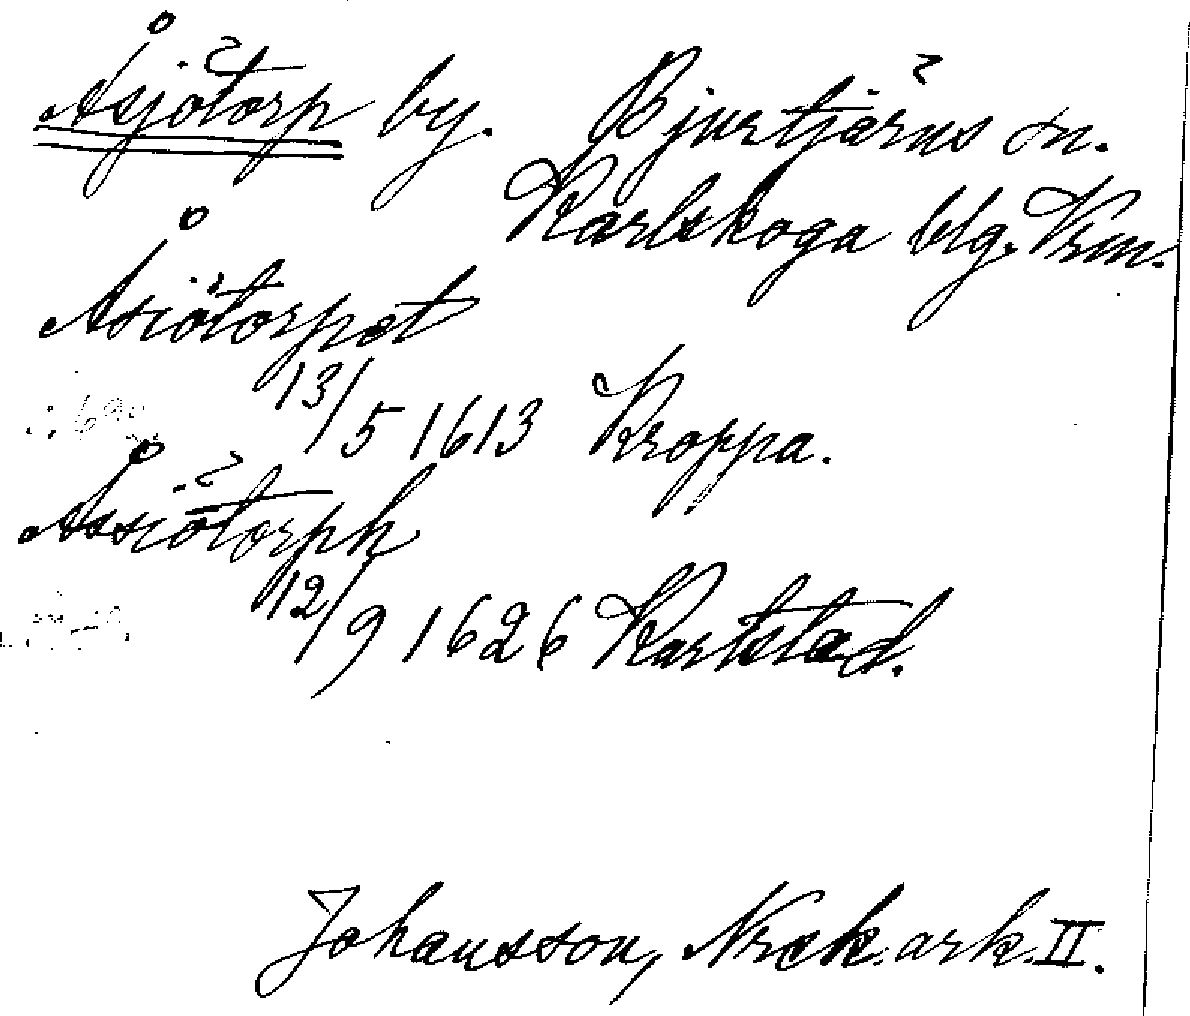 Åsjötorp by. Bjurtjärns sn.
Karlskoga blg. Vrm.
Åsiötorpet
13/5 1613 Kroppa.
Åssiötorph
12/9 1626 Karlstad.
Johansson, Nrck. ark. II.